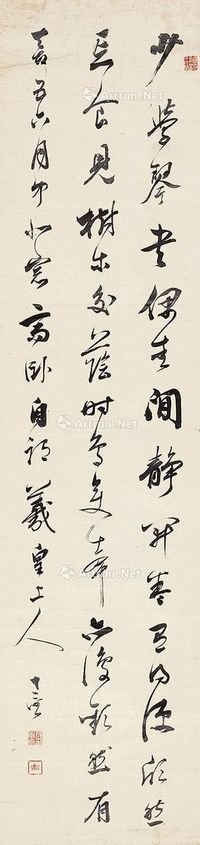 少学琴书偶爱闲静開卷有得便欣然
忘食見樹木交蔭時鳥变声亦復歡然有
喜五六月中北窓高臥自謂羲皇上人
Artron.Net
Artron.Net
Artron.Net